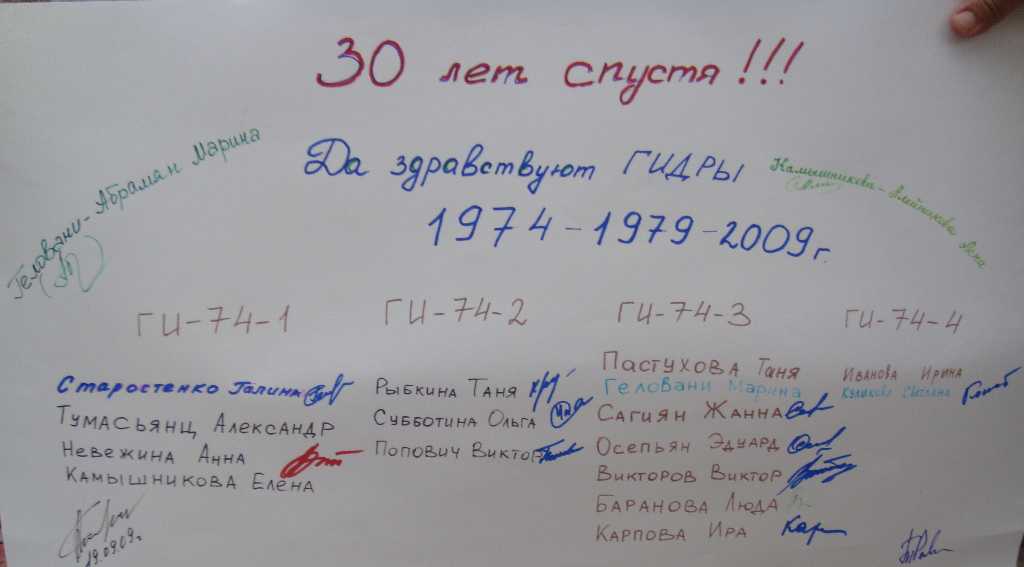 30 лет спустя!!!
Да здравствуют ГИДРЫ
1974-1979-2009г.
Геловани-Абрамян Марина
Камышникова- Лена
ГИ-74-1
Старостенко Галина
Тумасьянц Александр
Невежина Анна
Камышникова Елена
19.09.09г
ГИ-74-2
Рыбкина Таня
Субботина Ольга
Попович Виктор
ГИ-74-3
Пастухова Таня
Геловани Марина
Сагиян Жанна
Осепьян Эдуард
Викторов Виктор
Баранова Люда
Карпова Ира Кар
ГИ-74-4
Иванова Ирина
Куликова Светлана